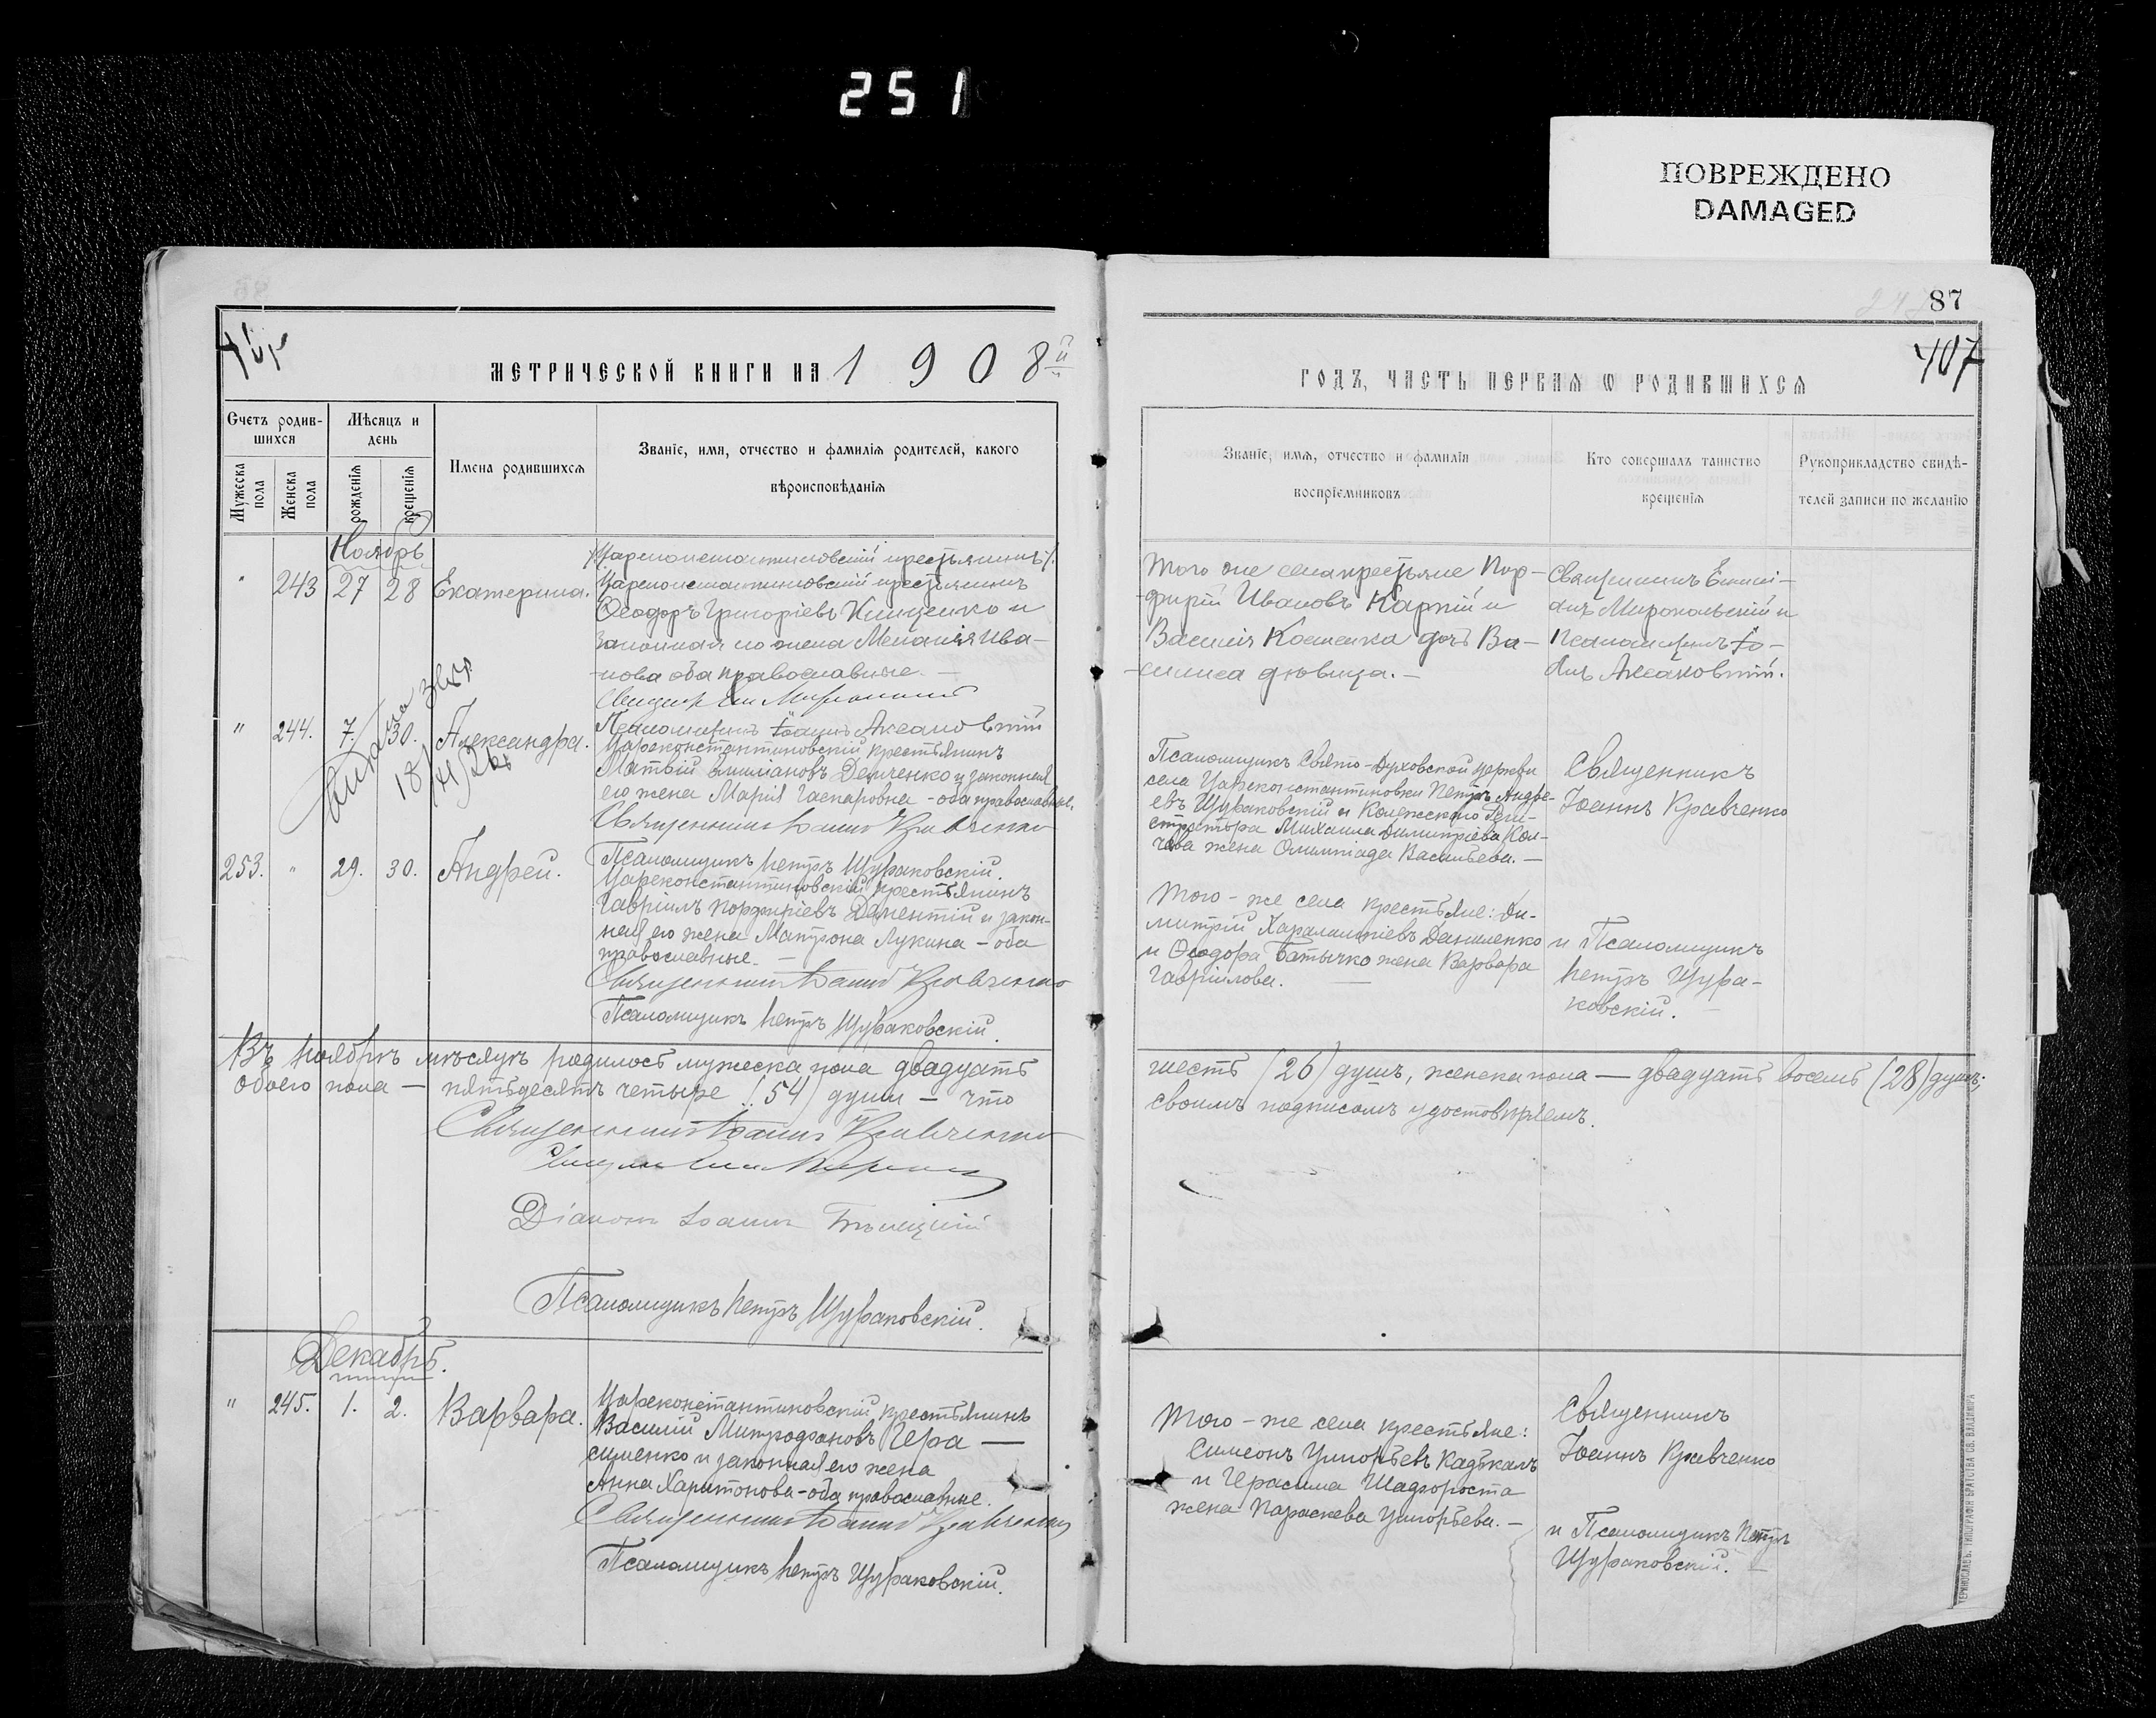 251
ПОВРЕЖДЕНО
DAMAGED
87
407
МЕТРИЧЕСКОЙ КНИГИ НА 1908й
ГОДЪ, ЧАСТЬ ПЕРВАЯ Ѡ РОДИВШИХСЯ
Счетъ родив-
шихся
Мужеска пола
Женска пола
Мѣсяцъ и
день
рожденія
крещенія
Имена родившихся
Званіе, имя, отчество и фамилія родителей, какого
вѣроисповѣданія
Званіе, имя, отчество и фамилія
воспріемниковъ
Кто совершалъ таинство
крещенія
Рукоприкладство свидѣ-
телей записи по желанію
Ноябрь
Цареконстантиновскій крестьянинъ
" 243 27 28 Екатерина. Цареконстантиновскій крестьянинъ
Ѳеодоръ Григоріевъ Кищенко и
законная его жена Меланія Ива-
нова оба православные. —
Того же села крестьяне Пор-
фирій Ивановъ Карпій и
Василія Костенка дочь Ва-
силиса дѣвица. —
Священникъ
Миропольскій и
Псаломщикъ Іо-
аннъ Аксаковскій.
Псаломщикъ Іоаннъ Аксаковскій
" 244. 7. 30. Александра. Цареконстантиновскій крестьянинъ
Матвій Емиліановъ Демченко и законная
его жена Марія Гаспаровна - оба православные.
Священникъ Іоаннъ Кравченко
Псаломщикъ Петръ Щураковскій.
Псаломщикъ Свято-Духовской церкви
села Цареконстантиновки Петръ Андре-
евъ Щураковскій и Колежскаго Реги-
стратора Михаила Димитріева Кол-
чева жена Олимпіада Васильева. —
Священникъ
Іоаннъ Кравченко
253. " 29. 30. Андрей. Цареконстантиновскій крестьянинъ
Гавріилъ Порфиріевъ Дементій и закон-
ная его жена Матрона Лукина - оба
православные. —
Священникъ Іоаннъ Кравченко
Псаломщикъ Петръ Щураковскій.
Того-же села крестьяне: Ди-
митрій Харалампіевъ Даниленко
и Ѳеодора Батычко жена Варвара
Гавріилова. —
и Псаломщикъ
Петръ Щура-
ковскій. —
Въ ноябрѣ мѣсяцѣ родилось мужеска пола двадцать шесть (26) душъ, женска пола — двадцать восемь (28) душъ;
обоего пола — пятьдесятъ четыре (54) души — что своимъ подписомъ удостовѣряемъ.
Священникъ Іоаннъ Кравченко
Діаконъ Іоаннъ Бѣлицкій
Псаломщикъ Петръ Щураковскій.
Декабрь.
" 245. 1. 2. Варвара. Цареконстантиновскій крестьянинъ
Василій Митрофановъ Гера-
сименко и законная его жена
Анна Харитонова - оба православные.
Священникъ Іоаннъ Кравченко
Псаломщикъ Петръ Щураковскій.
Того-же села крестьяне:
Симеонъ Григорьевъ Кадькалъ
и Герасима Шадгороста
жена Параскева Григорьева. —
Священникъ
Іоаннъ Кравченко
и Псаломщикъ Петръ
Щураковскій. —